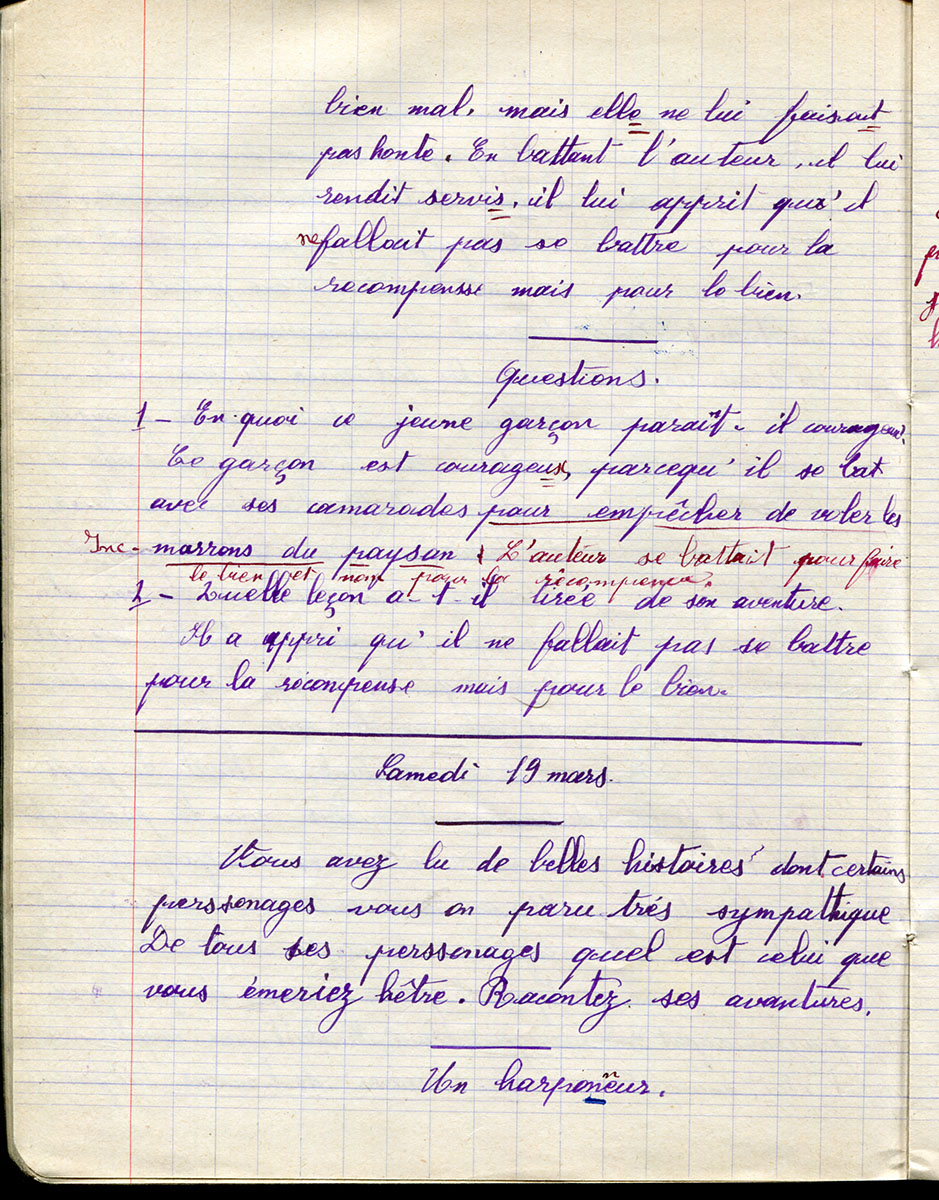 bien mal, mais elle ne lui faisait
pas honte. En battant l'auteur, il lui
rendit servis, il lui apprit qu'il
ne fallait pas se battre pour la
recompensse mais pour le bien.
Questions.
1 - En quoi ce jeune garçon paraît-il courageux.
Ce garçon est courageux, parcequ'il se bat
avec ses camarades pour empêcher de voler les
Inc - marrons du paysan. L'auteur se battait pour faire
le bien et non pour la récompense.
2 - Quelle leçon a-t-il tirée de son aventure.
Il a appri qu'il ne fallait pas se battre
pour la recompense mais pour le bien.
Samedi 19 mars.
Vous avez lu de belles histoires dont certains
perssonages vous on paru trés sympathique
De tous ses perssonages quel est celui que
vous émeriez hêtre. Racontez ses avantures.
Un harponneur.